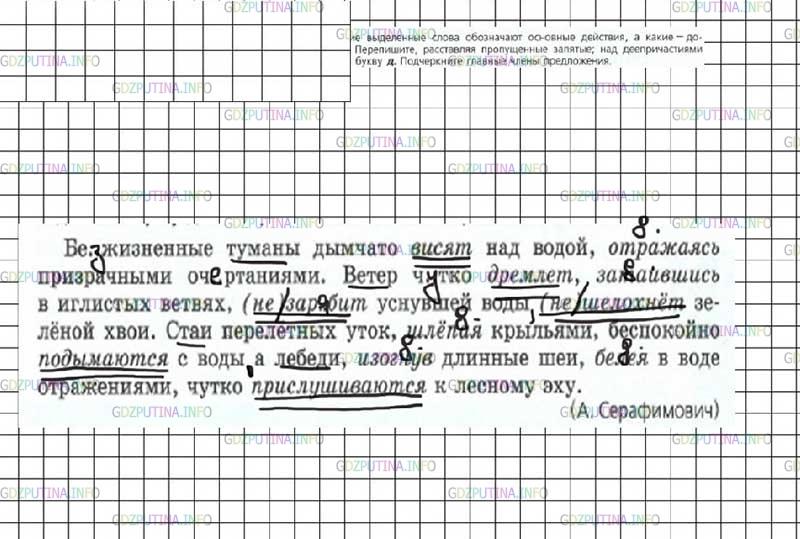 ие выделенные слова обозначают основные действия, а какие – до-
Перепишите, расставляя пропущенные запятые; над деепричастиями
букву д. Подчеркните главные члены предложения.
д.
Безжизненные туманы дымчато висят над водой, отражаясь
призрачными очертаниями. Ветер чутко дремлет, затаившись
в иглистых ветвях, (не)зарябит уснувшей воды, (не)шелохнёт зе-
лёной хвои. Стаи перелётных уток, шлёпая крыльями, беспокойно
подымаются с воды, а лебеди, изогнув длинные шеи, белея в воде
отражениями, чутко прислушиваются к лесному эху.
(А. Серафимович)
GDZPUTINA.INFO